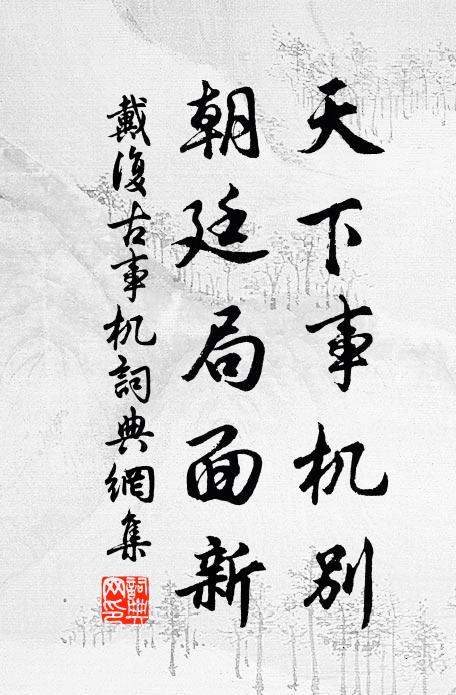 天下事机别
朝廷局面新
戴復古事机詞典網集
詞典